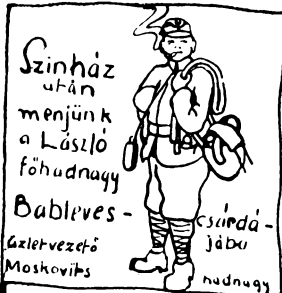 Szinház
után
menjünk
a László
főhadnagy
Bableves-
csárdá-
jába
üzletvezető
Moskovits
hadnagy